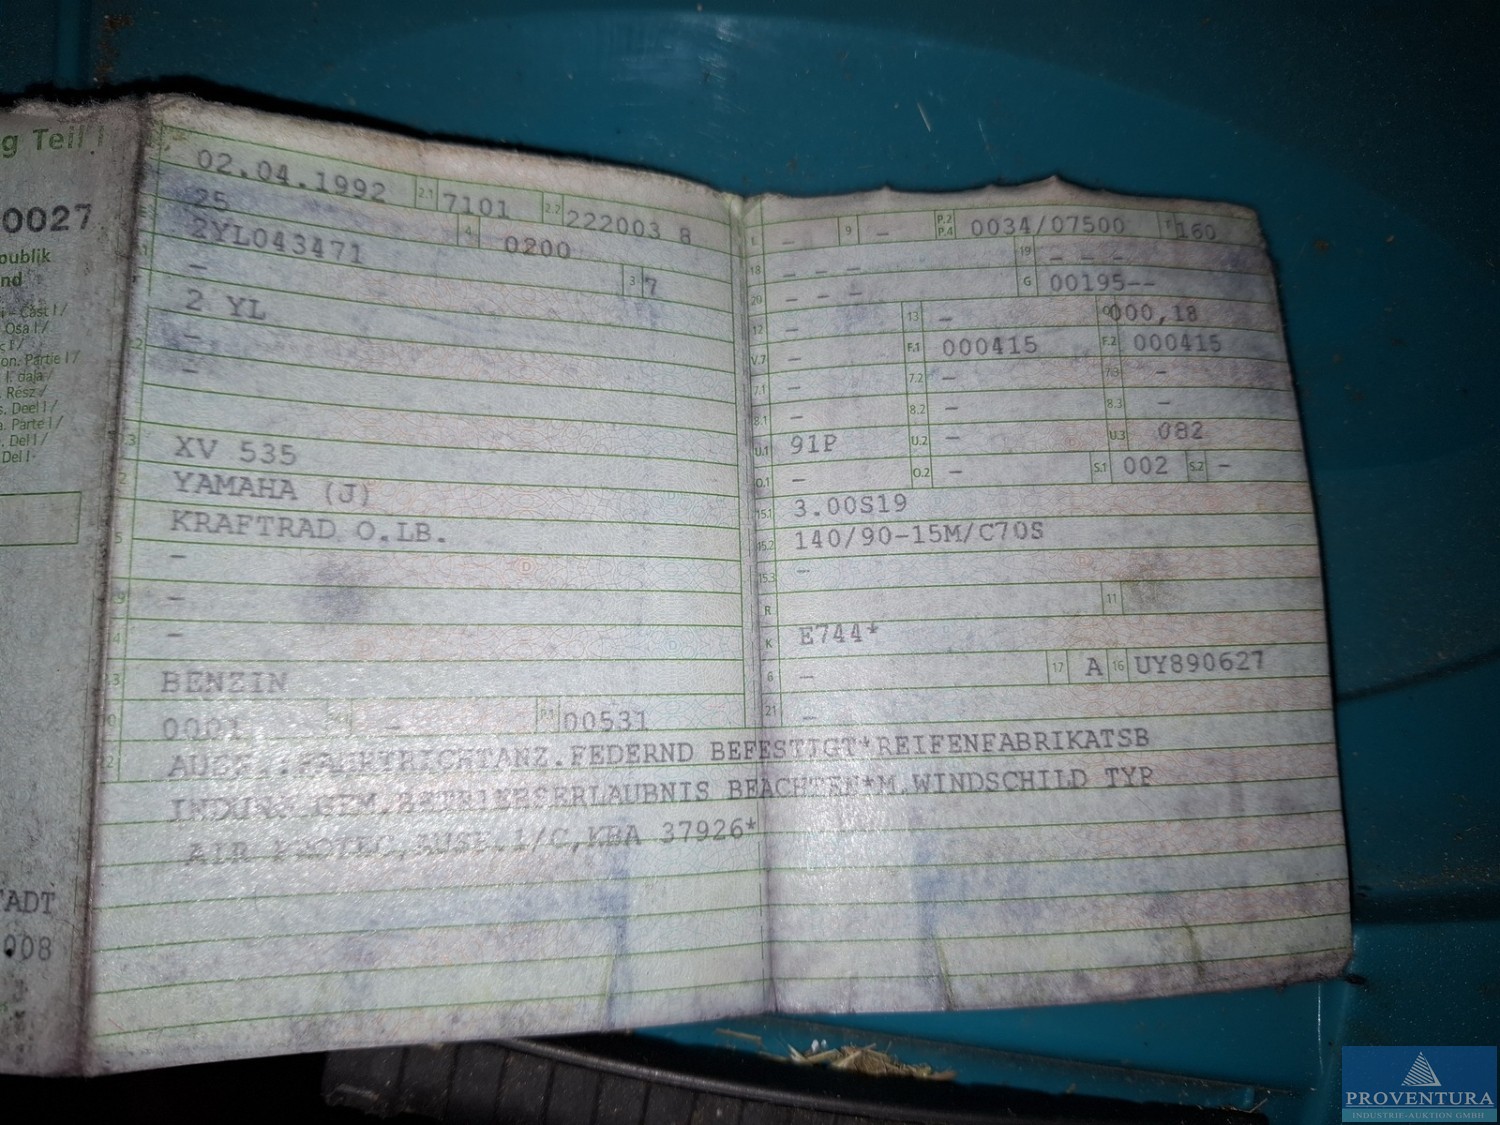 g Teil I
0027
publik
nd
Osa I /
on. Partie I /
Rész /
s. Deel I /
a. Parte I /
. Del I /
Del I-
TADT
008
02.04.1992 2.1 7101 2.2 222003 8
25 4 0200
2YL043471
- 3 7
2 YL
-
-
XV 535
YAMAHA (J)
KRAFTRAD O.LB.
-
-
-
BENZIN
0001 - P.1 00531
L - 9 - P.2 P.4 0034/07500 T 160
18 - - - 19 - - -
20 - - - G 00195--
12 - 13 - Q 000,18
V.7 - F.1 000415 F.2 000415
7.1 - 7.2 - 7.3 -
8.1 - 8.2 - 8.3 -
U.1 91P U.2 - U.3 082
O.1 - O.2 - S.1 002 S.2 -
15.1 3.00S19
15.2 140/90-15M/C70S
15.3 -
R 11
K E744*
6 - 17 A 16 UY890627
21 -
FAHRTRICHTANZ.FEDERND BEFESTIGT*REIFENFABRIKATSB
INDUNG GEM.BETRIEBSERLAUBNIS BEACHTEN*M.WINDSCHILD TYP
AIR PROTEC,AUSF.1/C,KBA 37926*
PROVENTURA
INDUSTRIE-AUKTION GMBH